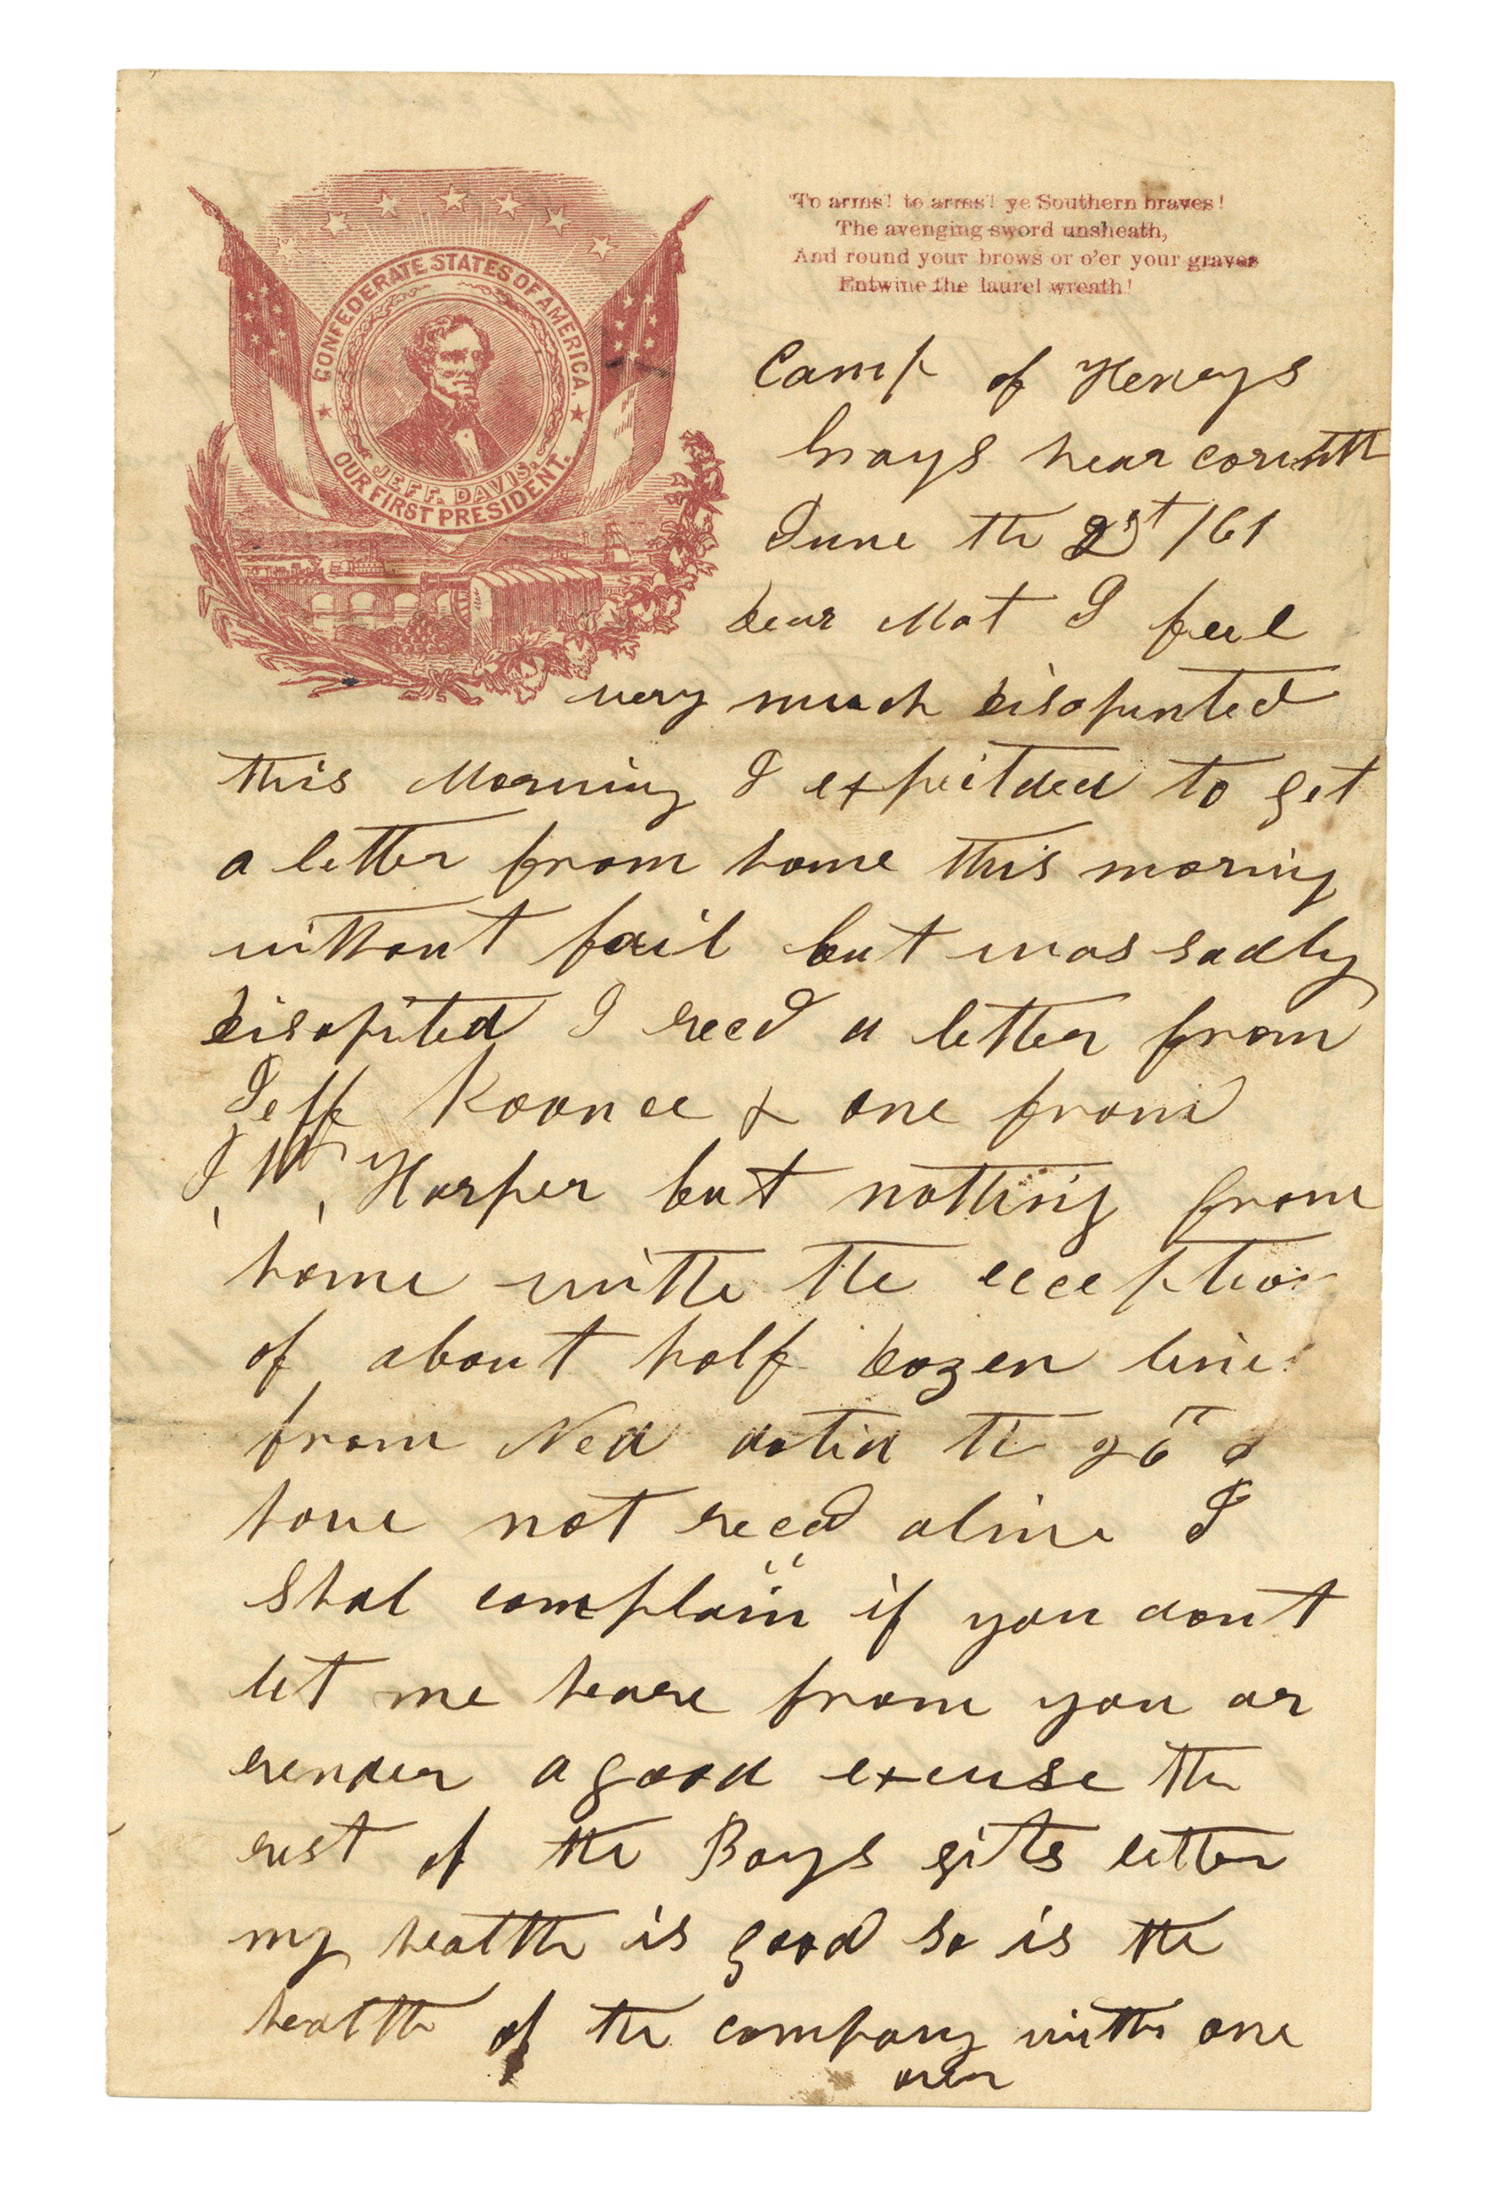 CONFEDERATE STATES OF AMERICA
JEFF. DAVIS.
OUR FIRST PRESIDENT.
"To arms! to arms! ye Southern braves!
The avenging sword unsheath,
And round your brows or o'er your graves
Entwine the laurel wreath!
Camp of Henrys
Grays near corinth
June the 2st /61
dear Mat I feel
very much disopinted
this Morning I expeitded to get
a letter from home this morning
without fail but was sadly
disopited I recd a letter from
Jeff Koonce & one from
J, W, Harper but nothing from
home withe the eception
of about half dozen line
from Ned datid the 26th I
have not recd aline I
Shal complain if you dont
let me heare from you or
render a good excuse the
rest of the Boys gits letter
my healthe is good so is the
healthe of the company withe one
over